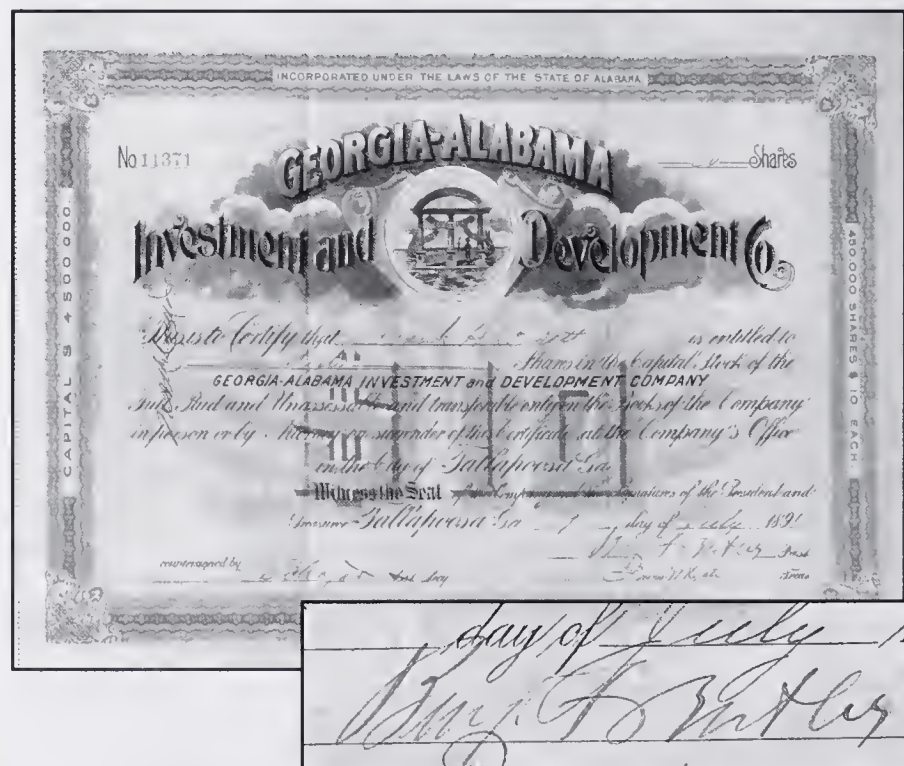 INCORPORATED UNDER THE LAWS OF THE STATE OF ALABAMA
No 11371
Shares
GEORGIA-ALABAMA
Investment and Development Co.
CAPITAL $ 4 500 000.
450.000 SHARES $ 10 EACH.
This is to Certify that is entitled to
Shares in the Capital Stock of the
GEORGIA-ALABAMA INVESTMENT and DEVELOPMENT COMPANY
Full Paid and Unassessable and transferable only on the Books of the Company
in person or by Attorney on surrender of this Certificate at the Company's Office
in the City of Tallapoosa Ga.
Witness the Seal of the Company and the Signatures of the President and
Treasurer Tallapoosa Ga 1 day of July 189
Benj F Butler Prest
countersigned by
Treas
day of July
Benj F Butler